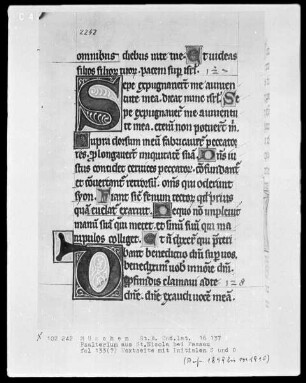 2257
omnibus diebus uite tue. Et uideas
filios filior tuor. pacem sup isrl.
Sepe expugnauert me a iuuen
tute mea. dicat nunc isrl. Se
pe expugnauert me a iuuentu
te mea. etenim non potuert m.
Supra dorsum meum fabricauert pecca
tores. plongauert iniquitate suā. Dns iu
stus concidet ceruices peccator. confundant
et cōuertant retrorsū. oms qui oderunt
syon. Fiant sic fenum tector. qd prius
quā euellat exaruit. De quo nō impleuit
manū suā qui metet. et sinū suū qui ma
nipulos colliget. Et nō dixert qui preteri
bant benedictio dni sup uos.
benediximus uob in noīe dni.
De pfundis clamaui ad te
dne. dne exaudi uocē meā.
X 102 242 München St.B. Cod.lat. 16 137
Psalterium aus St.Nicola bei Passau
fol 133(?) Textseite mit Initialen S und D